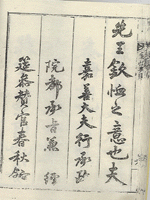 先王欽恤之意也夫
嘉善大夫行承政
院都承旨兼 經
筵參贊官春秋館